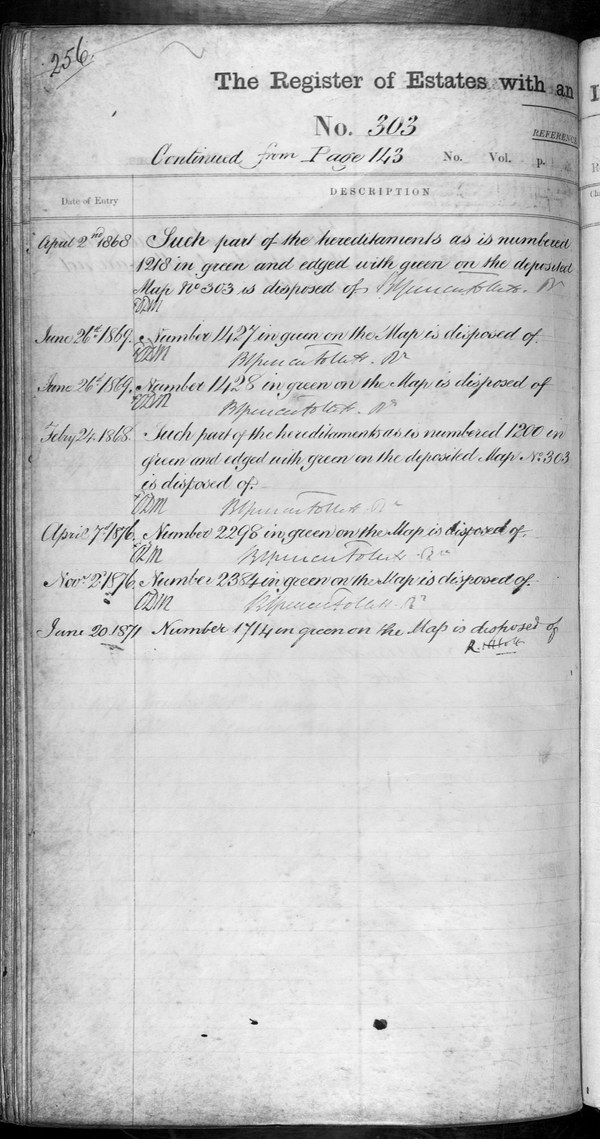 256
The Register of Estates with an
No. 303
REFERENCE
Continued from Page 143 No. Vol. p.
Date of Entry DESCRIPTION
April 2nd 1868 Such part of the hereditaments as is numbered
1218 in green and edged with green on the deposited
Map No 303 is disposed of BSpencer Follett. Rr
CDM
June 26th 1869. Number 1427 in green on the Map is disposed of
CDM BSpencer Follett. Rr
June 26th 1869. Number 1428 in green on the Map is disposed of
CDM BSpencer Follett. Rr
Febry 24. 1868. Such part of the hereditaments as is numbered 1200 in
green and edged with green on the deposited Map No 303
is disposed of.
CDM BSpencer Follett. Rr
April 7th 1876. Number 2298 in green on the Map is disposed of.
CDM BSpencer Follett. Rr
Novr 2d 1876. Number 2384 in green on the Map is disposed of.
CDM BSpencer Follett. Rr
June 20 1871 Number 1714 in green on the Map is disposed of